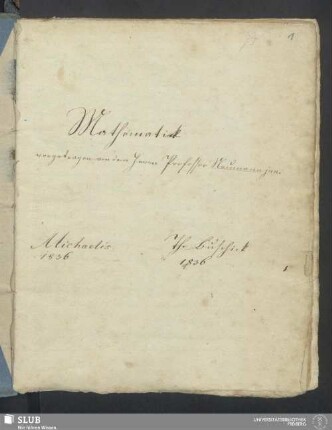 1
Mathematick
vorgetragen von dem Herrn Professor Naumann jun.
Michaelis
1836
Th. Buschick
1836
SLUB
Wir führen Wissen.
UNIVERSITÄTSBIBLIOTHEK
FREIBERG